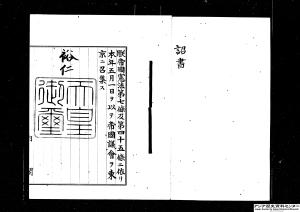 詔書
朕帝國憲法第七條及第四十五條ニ依リ
本年五月一日ヲ以テ帝國議會ヲ東
京ニ召集ス
裕仁
天皇
御璽
アジア歴史資料センター